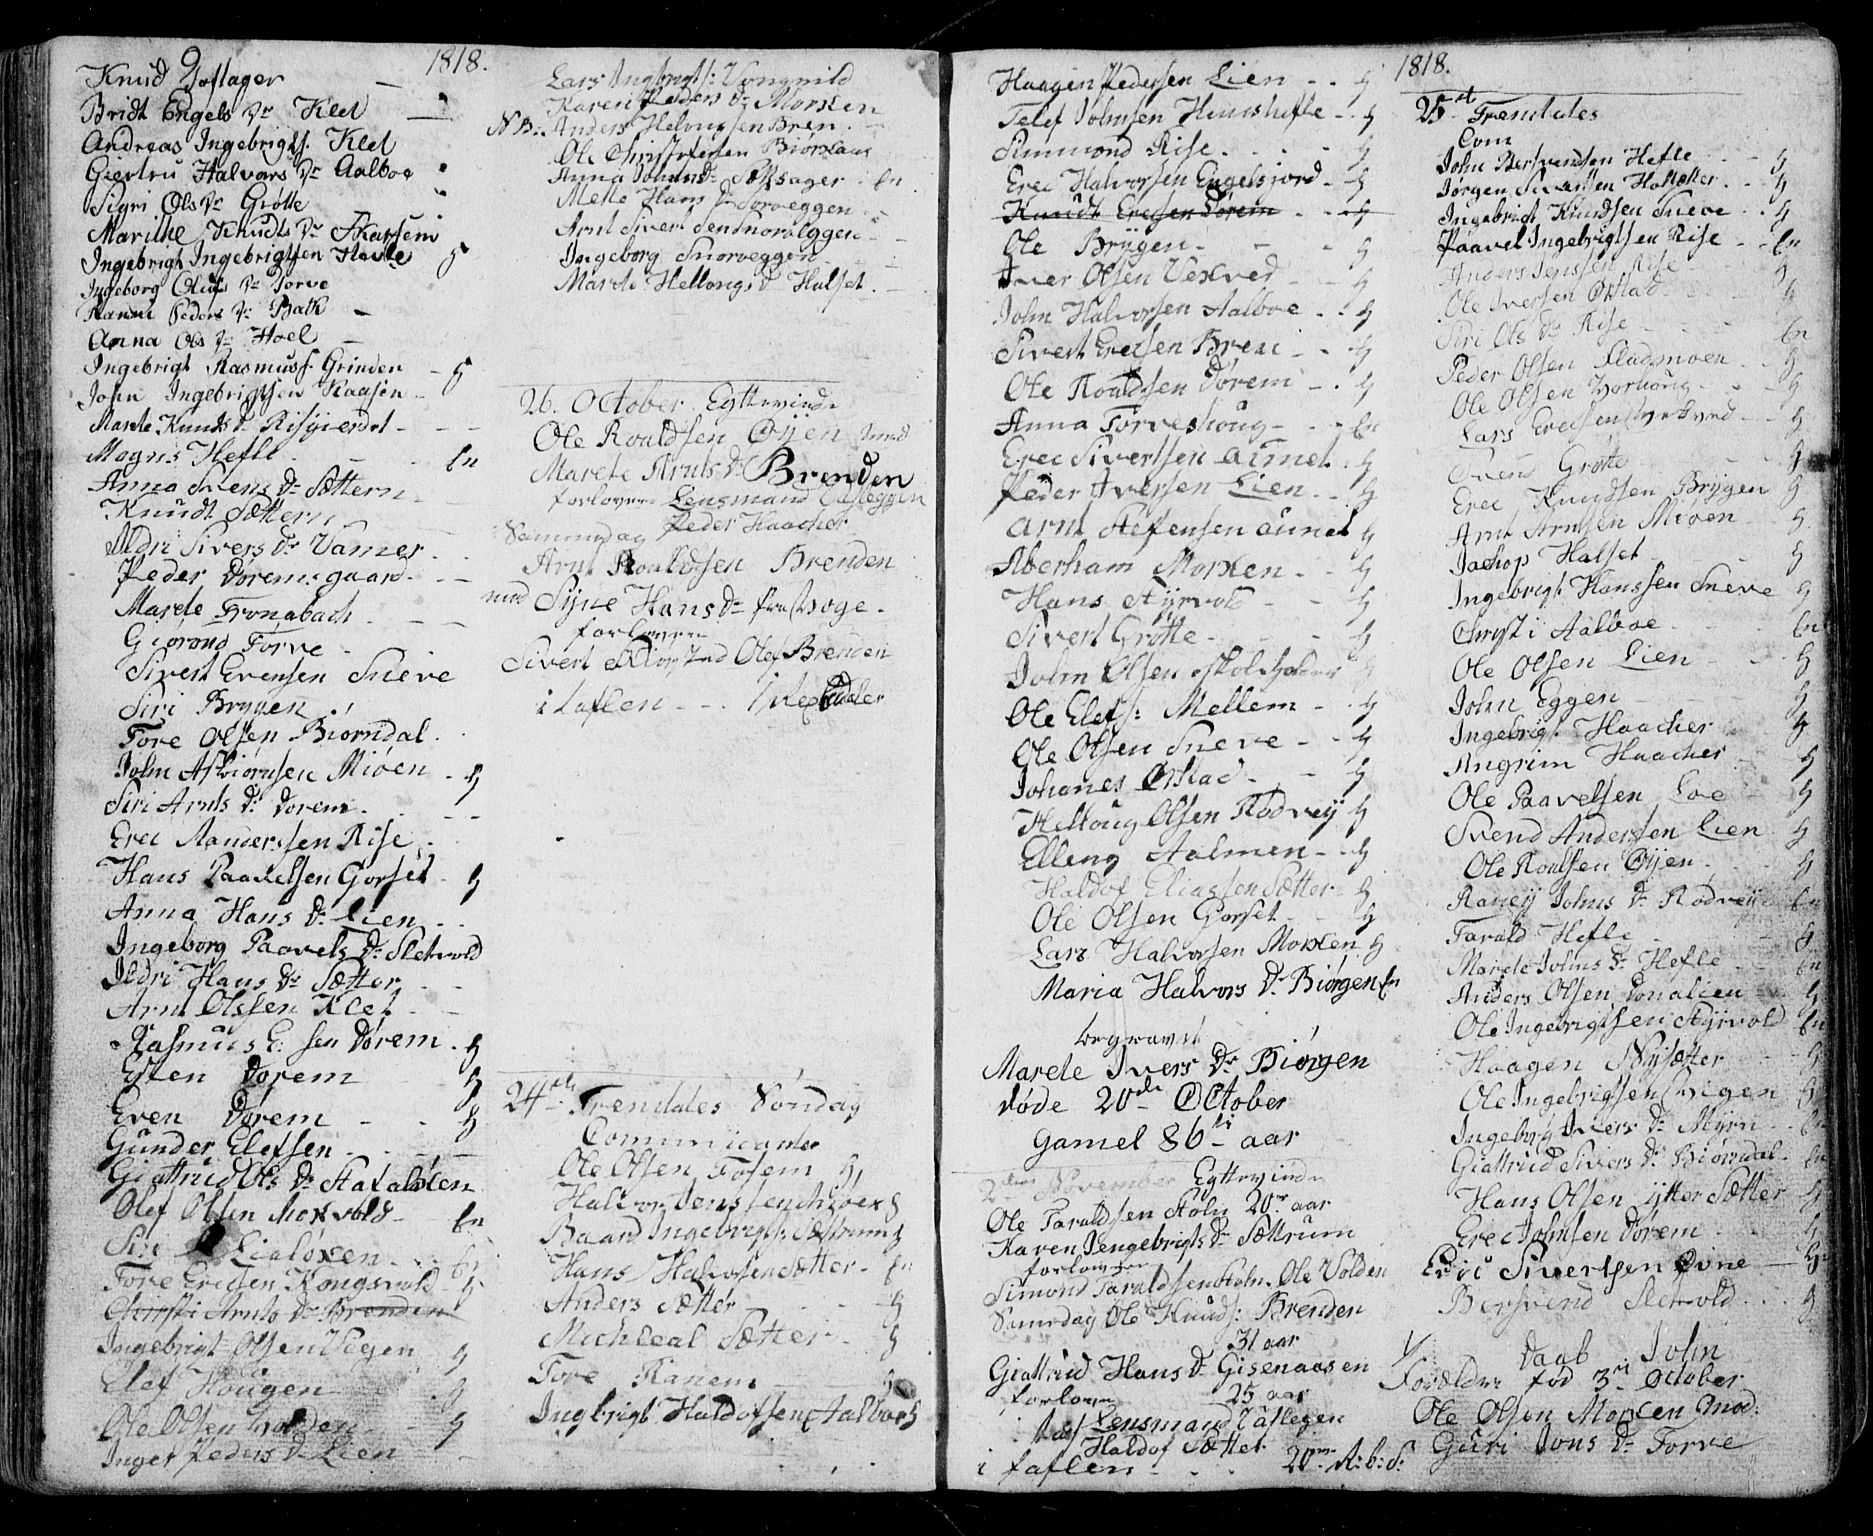 1818.
Knud Loslager
Bridt Engels Dr Klet
Andreas Ingebrigts. Klet
Giertru Halvors Dr Aalboe
Sigri Ols Dr Grötte
Marithe Knudts Dr Skarsem
Ingebrigt Ingebrigtsen Hevle
Ingeborg Olufs Dr Torve
Peders Dr Bak
Anna Ols Dr Hoel
Ingebrigt Rasmuss. Grinden
John Ingebrigtsen Kaasen
Marete Knuds Dr Risgierdet
Magnus Hefle En
Anna Svens Dr Sættern
Knudt Sættern
Ildri Sivers Dr Vammer
Peder Doremsgaard
Marete Fronabach
Torve
Sivert Evensen Sneve
Siri Bryggen
Tore Olsen Biørndal
John Asbiørnsen Mioen
Siri Arnts Dr Dorem
Erec Randerssen Rise
Hans Paavelsen Gorset
Anna Hans Dr Lien
Ingeborg Paavels Dr Sletvold
Ildri Hans Dr Sætter
Arnt Olssen Klet
Rasmus E: sen Dørem
Esten Dorem
Even Dørem
Gunder Elefsen
Giattrud Ols Dr
Olef Olsen Moxvold En
Siri Lialöxen En
Tore Erecsen Kongsvold
Christi Arnts Dr Brenden
Ingebrigt Olsen Vegen
Elef Hougen
Ole Olsen Volden
Inger Peders Dr Lien
Lars Ingbrigts: Vongvild
Karen Peders Dr Morken
NB: Anders Helvigsen Bren
Ole Christofersen Biørkaas
Anna Johans Dr En
Mette Hans Dr Torveggen
Arnt Sivert
Ingeborg Snorveggen
Marete Hellongs Dr Halset
26. October Egtevinde
Ole Roaldsen Oyen med
Marete Arnts Dr Brenden
forlovere Lensmand Casleggen
Peder Haacher
Sammedag
Arnt Roaldsen Brenden
med Syne Hans Dr fra Woge
forlovere
Sivert Olef Brenden
i taflen
24de Trendates Søndag
Communicanter
Ole Olsen Tosem
Halvor Jenssen Mioen
Baard Ingebrigts: Sættrum
Hans Halvorsen Sætter En
Anders Sætter
Michleal Sætter
Tore Ranem
Ingebrigt Haldofsen Aalboe
Haagen Pedersen Lien
Telef Johnsen Hunshefle
Simmond Rise
Erec Halvorsen Engelsjord
Knudt Erecsen Dørem
Ole Brygen
Iver Olsen Vekved
John Halvorsen Aalboe
Sivert Erecsen Bren
Ole Roaldsen Dörem
Anna Torveshoug En
Erec Sivertsen Aunet
Peder Iversen Lien
Arnt Stefensen Aunet
Aberham Morken
Hans Styrvold
Sivert Grøtte
John Olsen skoleholder
Ole Elefs: Mellem
Ole Olsen Sneve
Johanes Ørstad
Helloug Olsen Rodvey
Elleng Aalmen
Haldof Eliassen Sætter
Ole Olsen Gorset
Lars Halvorsen Morken
Maria Halvors Dr Biørgen En
begravet
Marete Ivers Dr Biörgen
døde 20de October
Gamel 86 aar
November Egtevinde
Ole Taraldsen Stoln 20 aar
Karen Jengebrigts Dr Sættrum
forlovere
Simond Taraldsen Stoln Ole Volden
Samedag Ole Knuds: Brenden
31 aar
Giattrud Hans Dr Gisenaasen
forlovere 25 aar
Lensmand Casleggen
Haldof Sætter
i taflen 20 R:b:d:
1818.
25 Trendates
Com
John Bersvendsen Hefle
Jørgen Sivertsen Holtætter
Ingebrigt Knudsen Sneve
Paavel Ingebrigtsen Rise En
Anders Jenssen Rise
Ole Iversen Ørstad
Siri Ols Dr Rise En
Peder Olsen Stadsmoen
Ole Olsen Vorhoug
Lars Erecsen Vekved
Svend Grøtte
Erec Knudsen Brygen
Arnt Arntsen Mioen
Jachop Halset
Ingebrigt Hanssen Sneve
Christi Aalboe En
Ole Olsen Lien
John Eggen
Ingebrigt Haacher
Angrim Haacher
Ole Paavelsen Loe
Svend Andersen Lien
Ole Roalsen Oyen
Raney Johns Dr Rodvey En
Tarald Hefle
Marete Johns Dr Hefle En
Anders Olsen Donalien
Ole Ingebrigtsen Styrvold En
Haagen Nysætter
Ole Ingebrigtsen Svigen
Ingeborg Ivers Dr Myrn En
Giattrud Sivers Dr Biørndal En
Hans Olsen ytter Sætter
Erec Johnsen Dørem
Eric Sivertsen Øvne
Bersvend Sletvold
Daab John
Forældre fød 3 October
Ole Olsen Morken Mod:
Guri Jons Dr Torve